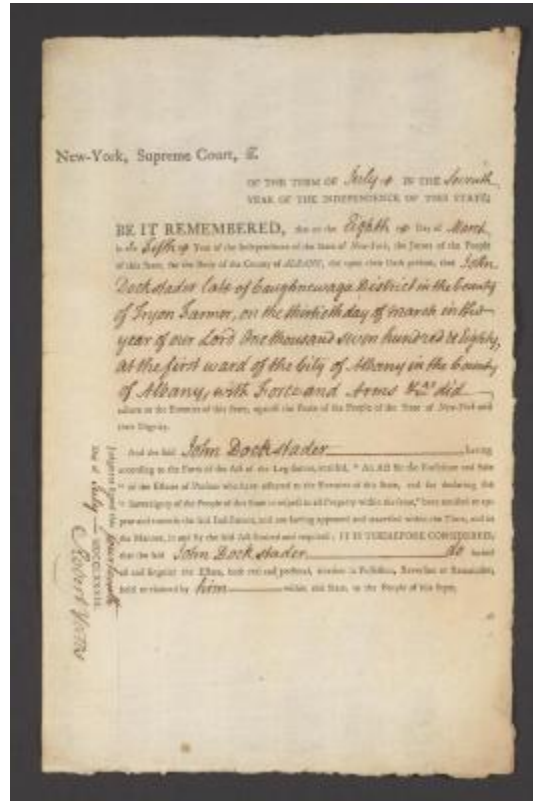 New-York, Supreme Court, ss.
OF THE TERM OF July IN THE Seventh
YEAR OF THE INDEPENDENCE OF THIS STATE;
BE IT REMEMBERED, that on the Eighth Day of March
in the fifth Year of the Independence of the State of New-York, the Jurors of the People
of this State, for the Body of the County of ALBANY, did upon their Oath present, that John
Dockstader late of Caughnewaga District in the County
of Tryon Farmer, on the thirtieth day of march in the
year of our Lord One thousand seven hundred & Eighty,
at the first ward of the City of Albany in the County
of Albany, with Force and Arms &c. did
adhere to the Enemies of this State, against the Peace of the People of the State of New-York and
their Dignity.
And the said John Dockstader having
according to the Form of the Act of the Legislature, entitled, " An Act for the Forfeiture and Sale
" of the Estates of Persons who have adhered to the Enemies of this State, and for declaring the
" Sovereignty of the People of this State in respect to all Property within the same," been notified to ap-
pear and traverse the said Indictment, and not having appeared and traversed within the Time, and in
the Manner, in and by the said Act limited and required; IT IS THEREFORE CONSIDERED,
that the said John Dockstader do forfeit
all and singular the Estate, both real and personal, whether in Possession, Reversion or Remainder,
held or claimed by him within this State, to the People of this State.
Judgment signed this
Day of July MDCCLXXXIII.
Robert Yates